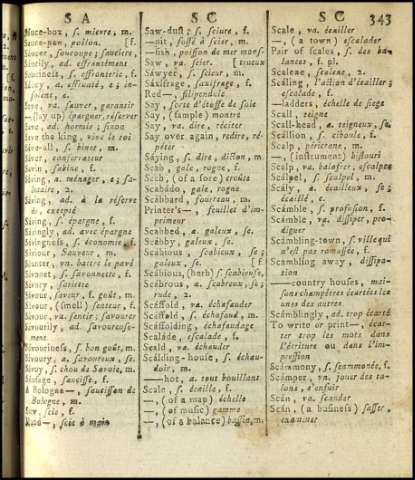 S A
S C
S C
343
Sauce-box, s. mievre, m.
Sauce-pan, poêlon. [f.
Saucer, saucoupe; sauciere,
Saucily, ad. effrontément
Sauciness, s. effronterie, f.
Save, va. sauver, garantir
—(lay up) épargner, réserver
Save, ad. hormis; sinon
Save the king, vive le roi
Save-all, s. binet, m.
Saver, conservateur
Savin, sabine, f.
Saving, a. ménager, e; sa-
Saving, ad. à la réserve
de, excepté
Saving, s. épargne, f.
Savingly, ad. avec épargne
Savingness, s. économie
Saviour, Sauveur, m.
Saunter, vn. battre le pavé
Savonet, s. savonnette, f.
Savory, sariette
Savour, saveur, f. goût, m.
Savour, (smell) senteur, f.
Savour, va. sentir; savourer
Savourily, ad. savoureuse-
ment
Savouriness, s. bon goût, m.
Savoury, a. savoureux, se.
Savoy, s. chou de Savoie, m.
Sausage, saucisse, f.
A Bologna—, saucisson de
Bologne, m.
Saw, scie, f.
Hand—, scie à main
Saw-dust; s. sciure, f.
—pit, fosse à scier, m.
—fish, poisson de mer mons-
Saw, va. scier. [trueux
Sawyer, s. scieur, m.
Saxifrage, saxifrage, f.
Red—, filipendule
Say, sorte d'étoffe de soie
Say, (sample) montre
Say, va. dire, réciter
Say over again, redire, ré-
péter
Saying, s. dire, diction, m.
Scab, gale, rogne, f.
Scab, (of a sore) croûte
Scabado, gale, rogne
Scabbard, fourreau, m.
Printer's—, feuillet d'im-
primeur
Scabbed, a. galeux, se.
Scabby, galeux, se.
Scabious, scabieux, se;
galeux, se. [f
Scabious, (herb) scabieuse,
Scabrous, a. scabreux, se;
rude, 2.
Scaffold, va. échafauder
Scaffold, s. échafaud, m.
Scaffolding, échafaudage
Scalade, escalade, f.
Scald, va. échauder
Scalding-house, s. échau-
doir, m.
—hot, a. tout bouillant
Scale, s. écaille, f.
—, (of a map) échelle
—, (of music) gamme
—, (of a balance) bassin, m.
Scale, va. écailler
—, (a town) escalader
Pair of scales, s. des ba-
lances, f. pl.
Scalene, scalene, 2.
Scaling, l'action d'écailler;
escalade, f.
—ladders, échelle de siege
Scall, teigne
Scall-head, a. teigneux, se
Scallion, s. ciboule, f.
Scalp, péricrane, m.
—, (instrument) bistouri
Scalp, va. balafrer, escalper
Scalpel, s. scalpel, m.
Scaly, a. écailleux, se;
écaillé, e.
Scamble, s. profusion, f.
Scamble, va. dissiper, pro-
diguer
Scambling-town, s. ville qui
n'est pas ramassée, f.
Scambling away, dissipa-
tion
—country houses, mai-
sons champêtres écartées les
unes des autres
Scamblingly, ad. trop écarté
To write or print—, écar-
ter trop les mots dans
l'écriture ou dans l'im-
pression
Scammony, s. scammonée, f.
Scamper, vn. jouer des ta-
lons, s'enfuir
Scan, va. scander
Scan, (a business) sasser,
examiner